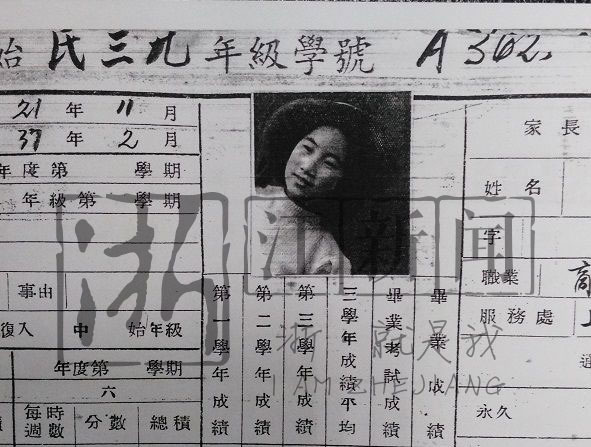 始 民三九 年級學號 A 302
21 年 11 月
37 年 2 月
年度第 學期
年級第 學期
事由
復入 中 始年級
年度第 學期
六
每週時數 分數 總積
第一學年成績
第二學年成績
第三學年成績
三學年成績平均
畢業考試成績
畢業成績
家長
姓名
字
職業 商
服務處
永久
浙江新闻
浙 就是我
I AM ZHEJIANG